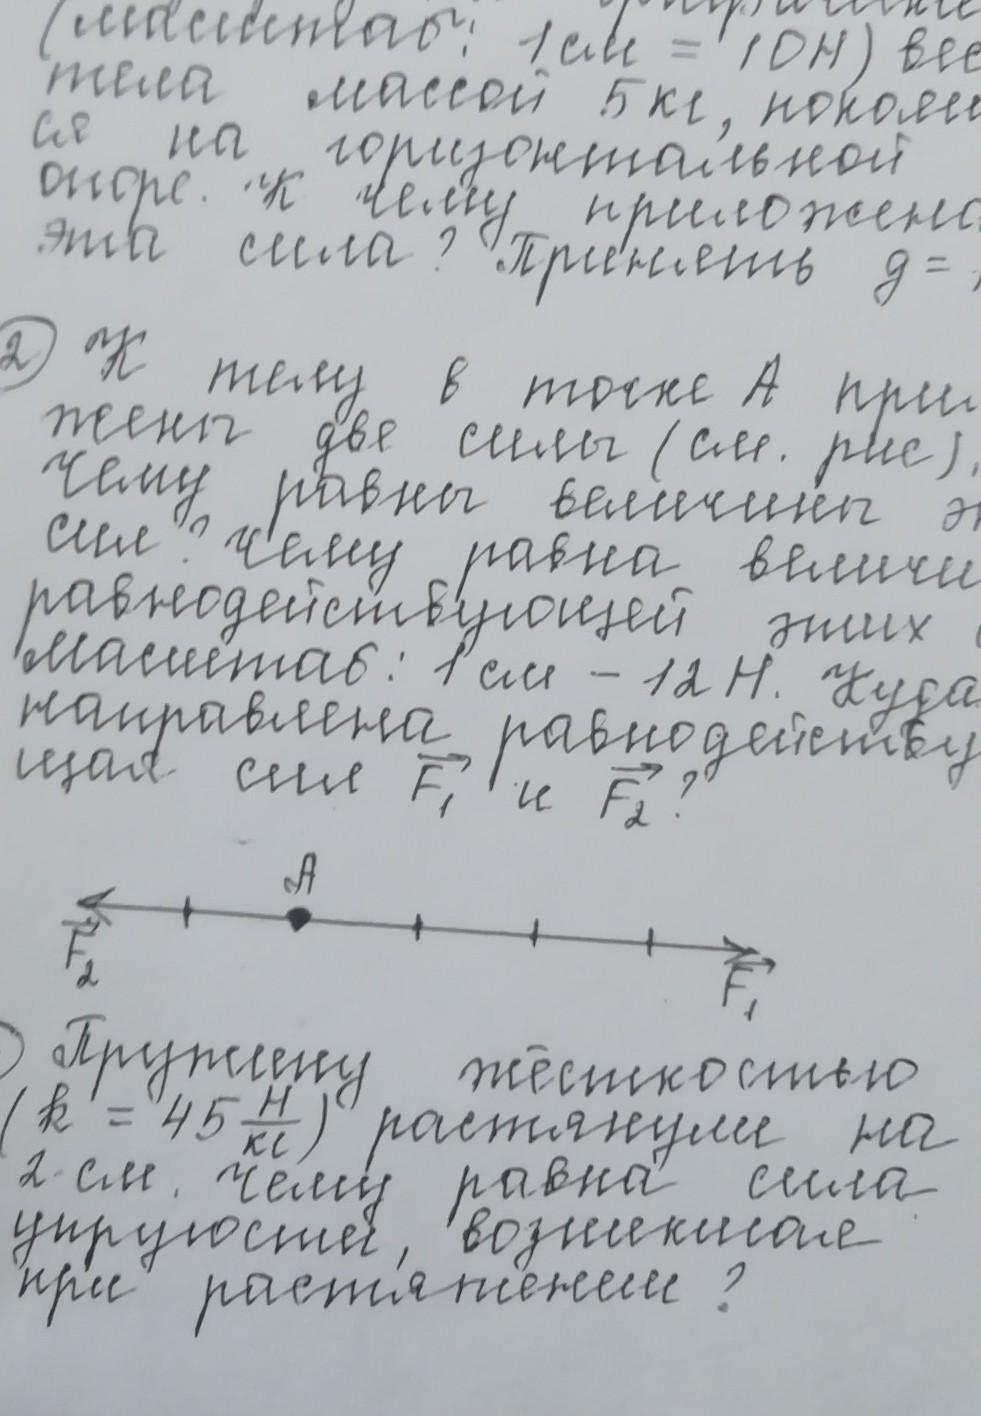 (масштаб: 1см = 10Н) вес
тела массой 5кг, покоящ
ся на горизонтальной
опоре. К чему приложена
эта сила? Принять g =
2) К телу в точке А прил
жены две силы (см. рис).
Чему равны величины э
сил? Чему равна величи
равнодействующей этих
Масштаб: 1см – 12Н. Куда
направлена равнодейству
щая сил F₁ и F₂?
А
F₂
F₁
Пружину жёсткостью
(k = 45 Н/кг) растянули на
2 см. Чему равна сила
упругости, возникшая
при растяжении?